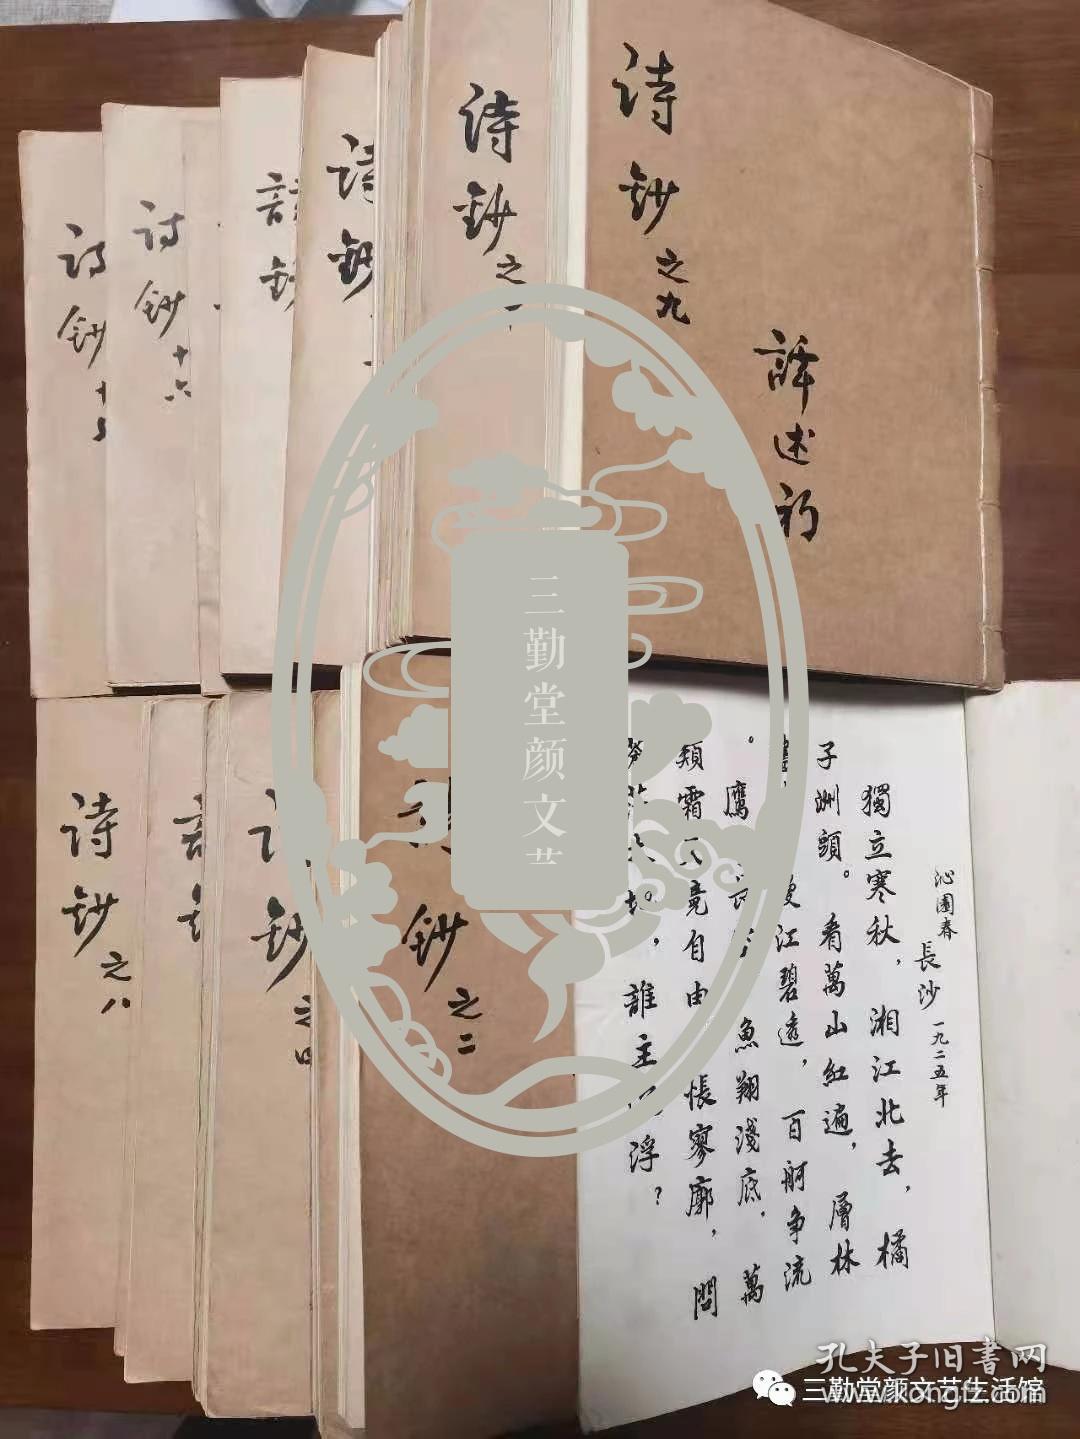 诗钞之九
譯述初
诗钞之一
诗钞
诗钞
诗钞十六
诗钞十
三勤堂颜文艺
沁園春 長沙 一九二五年
獨立寒秋,湘江北去,橘
子洲頭。看萬山紅遍,層林
江碧透,百舸争流
。鷹 魚翔淺底,萬
類霜天竟自由 悵寥廓,問
誰主 浮?
诗钞之八
诗钞之四
钞之二
孔夫子旧书网
www.kongfz.com
三勤堂颜文艺生活馆